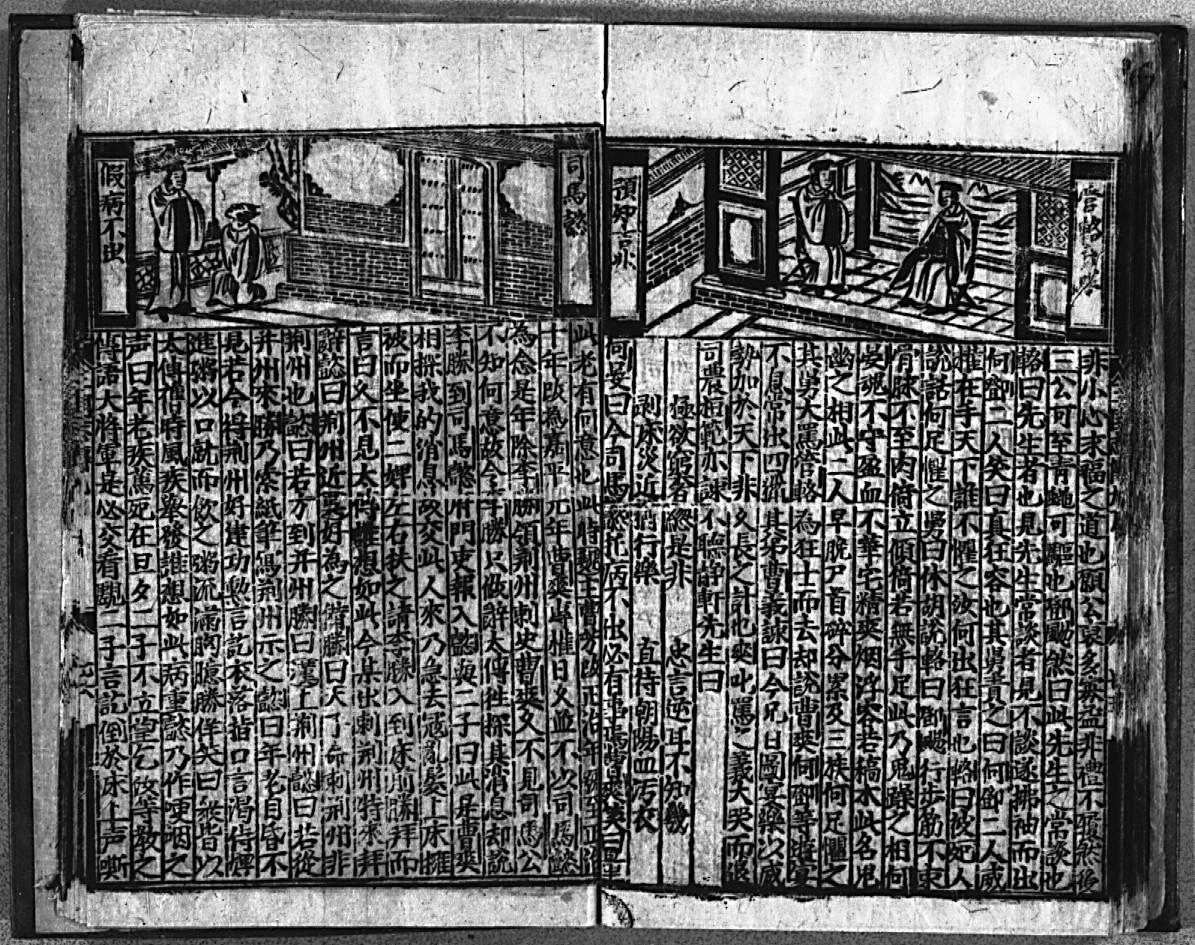 預知吉凶
非小心求福之道也願公裒多益寡非禮不履然後
三公可至青蠅可驅也鄧颺然曰此先生之常談也
輅曰先生者也見先生常談者見不談遂拂袖而出
何鄧二人笑曰真狂客也其舅責之曰何鄧二人威
權在手天下誰不懼之汝何出狂言也輅曰彼死人
說話何足懼之舅曰休胡說輅曰鄧颺行步筋不束
骨脉不至肉倚立傾倚若無手足此乃鬼躁之相何
晏魂不守盈血不華宅精爽烟浮容若稿木此名鬼
幽之相此二人早晚尸首碎分累及三族何足懼之
其舅大罵管輅為狂士而去却說曹爽何鄧等遊宴
不息常出四獵其弟曹義諫曰今兄日圖宴樂以威
勢加於天下非久長之計也爽叱罵之義大哭而退
司農桓範亦諫不聽静軒先生曰
極欲窮奢總是非 忠言逆耳不知幾
剥床災近猶行樂 直待朝陽血污衣
何晏曰今司馬懿托病不出必有事焉曹爽笑曰
司馬懿
假病不出
此老有何意也此時魏主曹芳改正治年號至正治
十年改為嘉平元年曹爽專權日久並不以司馬懿
為念是年除李勝領荊州刺史曹爽久不見司馬公
不知何意故令李勝只做辞太傅往探其消息却說
李勝到司馬懿府門吏報入懿與二子曰此是曹爽
相探我的消息故交此人來乃急去冠亂髮上床擁
被而坐使二婢左右扶之請李勝入到床前勝拜而
言曰久不見太傅誰想如此今某出刺荊州特來拜
辞懿曰荊州近裏好為之備勝曰天子命刺荊州非
荊州也懿曰若方到并州勝曰漢上荊州懿曰若從
并州來勝乃索紙筆寫荊州示之懿曰年老自昏不
見若今將荊州好建功勲言訖衣落指口言渴侍婢
進粥以口就而飲之粥流滿胸臆勝佯笑曰衆皆以
太傅舊時風疾舉發誰想如此病重懿乃作哽咽之
声曰年老疾篤死在旦夕二子不立望乞教等教之
傳語大將軍是必交看覷二子言訖倒於床上声嘶